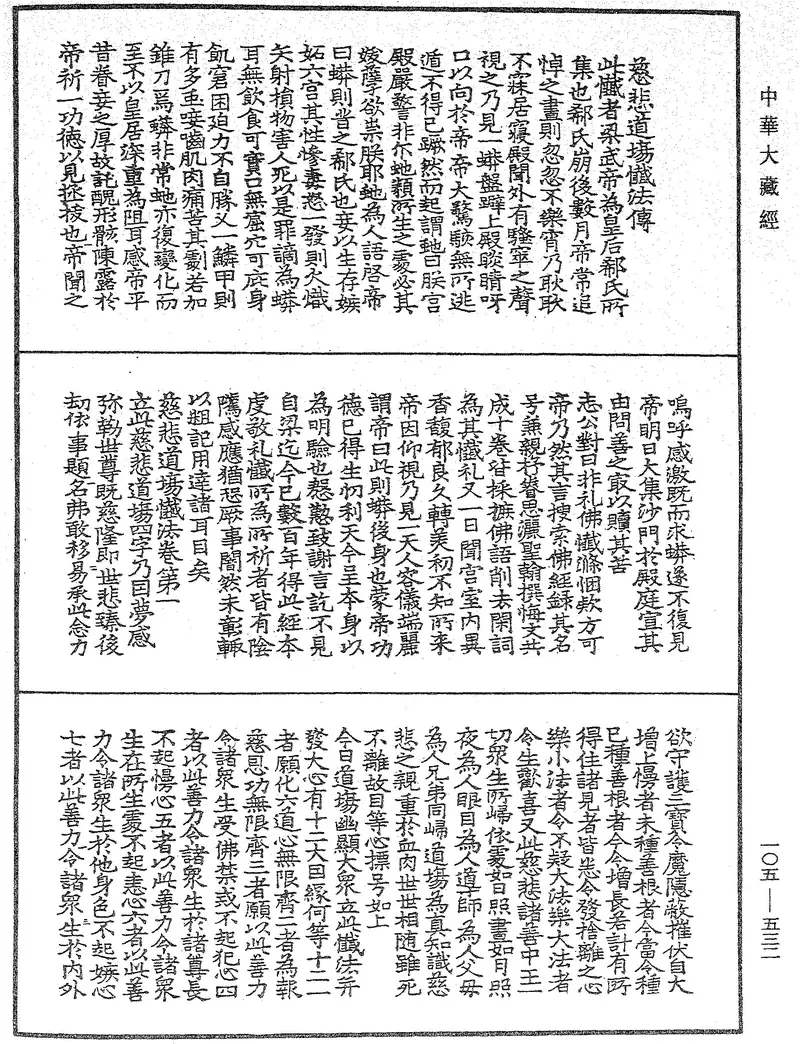 中華大藏經
慈悲道場懺法傳
此懺者梁武帝為皇后郗氏所
集也郗氏崩後數月帝常追
悼之晝則忽忽不樂宵乃耿耿
不寐居寢殿聞外有騷窣之聲
視之乃見一蟒盤躃上殿睒睛呀
口以向於帝帝大驚駭無所逃
遁不得已蹶然而起謂虵曰朕宮
殿嚴警非尒虵類所生之處必其
妖孽欲祟朕耶虵為人語啓帝
曰蟒則昔之郗氏也妾以生存嫉
妬六宮其性慘毒怒一發則火熾
矢射損物害人死以是罪謫為蟒
耳無飲食可實口無窟穴可庇身
飢窘困迫力不自勝又一鱗甲則
有多虫唼齧肌肉痛苦其劇若加
錐刀焉蟒非常虵亦復變化而
至不以皇居深重為阻耳感帝平
昔眷妾之厚故託醜形骸陳露於
帝祈一功德以見拯拔也帝聞之
嗚呼感激既而求蟒遂不復見
帝明日大集沙門於殿庭宣其
由問善之最以贖其苦
志公對曰非礼佛懺滌悃欵方可
帝乃然其言搜索佛經錄其名
号兼親抒睿思灑聖翰撰悔文共
成十卷皆採摭佛語削去閑詞
為其懺礼又一日聞宮室內異
香馥郁良久轉美初不知所来
帝因仰視乃見一天人容儀端麗
謂帝曰此則蟒後身也蒙帝功
德已得生忉利天今呈本身以
為明驗也慇懃致謝言訖不見
自梁迄今已數百年得此經本
虔敬礼懺所為所祈者皆有陰
隲感應猶恐厥事闇然未彰輙
以粗記用達諸耳目矣
慈悲道場懺法卷第一
立此慈悲道場四字乃因夢感
弥勒世尊既慈隆即世悲臻後
劫依事題名弗敢移易承此念力
欲守護三寶令魔隱蔽摧伏自大
增上慢者未種善根者今當令種
已種善根者今令增長若計有所
得住諸見者皆悉令發捨離之心
樂小法者令不疑大法樂大法者
令生歡喜又此慈悲諸善中王一
切眾生所歸依處如日照晝如月照
夜為人眼目為人導師為人父母
為人兄弟同歸道場為真知識慈
悲之親重於血肉世世相隨雖死
不離故目等心標号如上
今日道場幽顯大眾立此懺法并
發大心有十二大因緣何等十二一
者願化六道心無限齊二者為報
慈恩功無限齊三者願以此善力
令諸眾生受佛禁戒不起犯心四
者以此善力令諸眾生於諸尊長
不起慢心五者以此善力令諸眾
生在所生處不起恚心六者以此善
力令諸眾生於他身色不起嫉心
七者以此善力令諸眾生於內外
一〇五—五三二